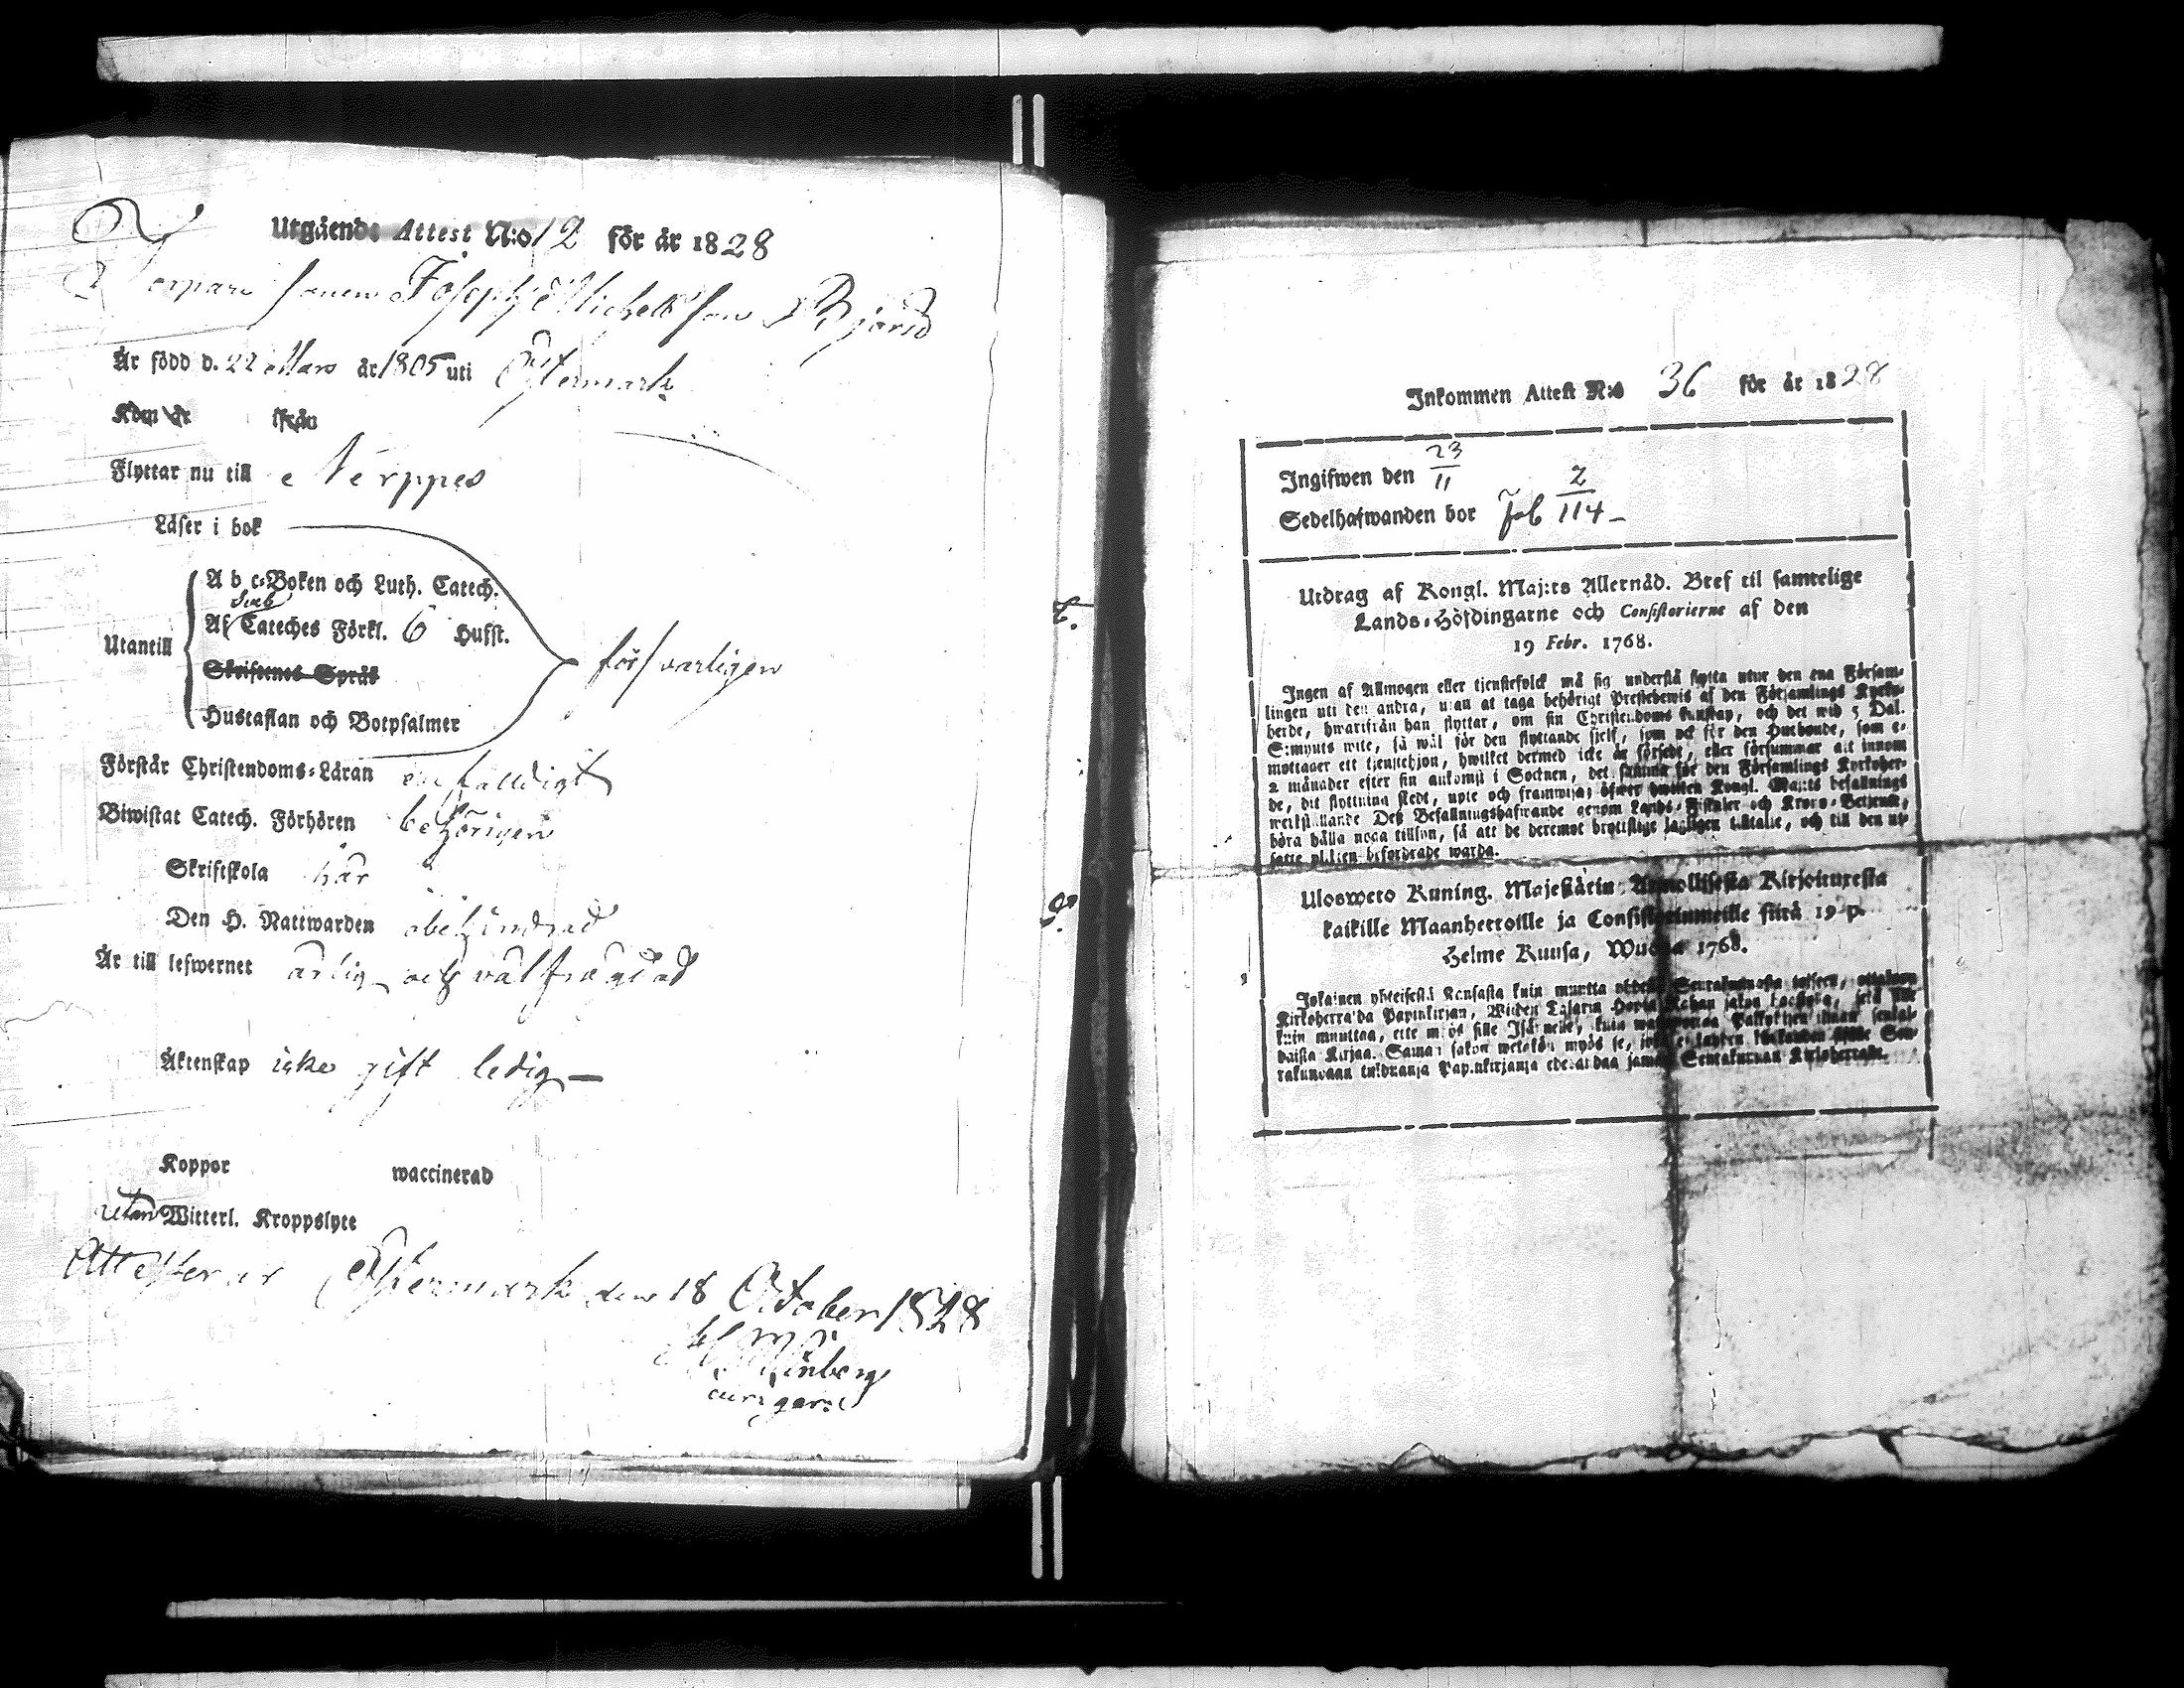 Utgående Attest N:o 12 för år 1828
Torpare sonen Joseph Michelsson Björs
Är född d. 22 Mars år 1805 uti Östermark
Kom år ifrån
Flyttar nu till Nerppes
Läser i bok
A b c-Boken och Luth. Catech.
Af Cateches Förkl. 6 Hufst.
Utantill
försvarligen
Skriftenes Språk
Hustaflan och Botpsalmer
Förstår Christendoms-Läran enfaldigt
Biwistat Catech. Förhören behörigen
Skriftskola här
Den H. Nattwarden obehindrad
Är till lefwernet ärlig och välfrägdad
Äktenskap icke gift ledig —
Koppor waccinerad
utan Witterl. Kroppslyte
Attesterar Östermark den 18 October 1828
Inkommen Attest N:o 36 för år 1828
Ingifwen den 23/11
Sedelhafwanden bor 2/114 -
Utdrag af Kongl. Maj:ts Allernåd. Bref til samtelige
Lands-Höfdingarne och Consistorierne af den
19 Febr. 1768.
Ingen af Allmogen eller tjenstefolck må sig understå flytta utur den ena Försam-
lingen uti den andra, utan at taga behörigt Prestebewis af den Församlings Kyrko-
herde, hwarifrån han flyttar, om sin Christendoms kunskap, och det wid 5 Dal.
S:mynts wite, så wäl för den flyttande sjelf, som ock för den Husbonde, som e-
mottager ett tjenstehjon, hwilket dermed icke är försedt, eller försummar att innom
2 månader efter sin ankomst i Socknen, det samma för den Församlings Kyrkoher-
de, dit flyttning skedt, upte och framwisa; öfwer hwilken Kongl. Maj:ts befallnings
werkställande Deß Befallningshafwande genom Lands-Fiskaler och Krono-Betjente,
böra hålla noga tillsyn, så att de deremot brottslige lagligen tilltalte, och till den ut-
satte plikten befordrade warda.
Ulosweto Kuning. Majestätin Armollisesta Kirjoituxesta
kaikille Maanherroille ja Consistoriumeille siitä 19 p.
Helme Kuusa, Wuonna 1768.
Jokainen yhteisestä Kansasta kuin muutta yhdestä Seurakunnasta toiseen, ottakoon
Kirkoherralda Papinkirjan, Wiiden Talarin Hopia Rahan sakon haastolla, sekä sille
kuin muuttaa, ette myös sille Isännelle, kuin wastaanottaa Palkollisen ilman senkal-
daista Kirjaa. Saman sakon wetäkön myös se, joka ei kahden kuukauden sisälle Seu-
rakundaan tulduansa Papinkirjansa edesandaa saman Seurakunnan Kirkoherralle.